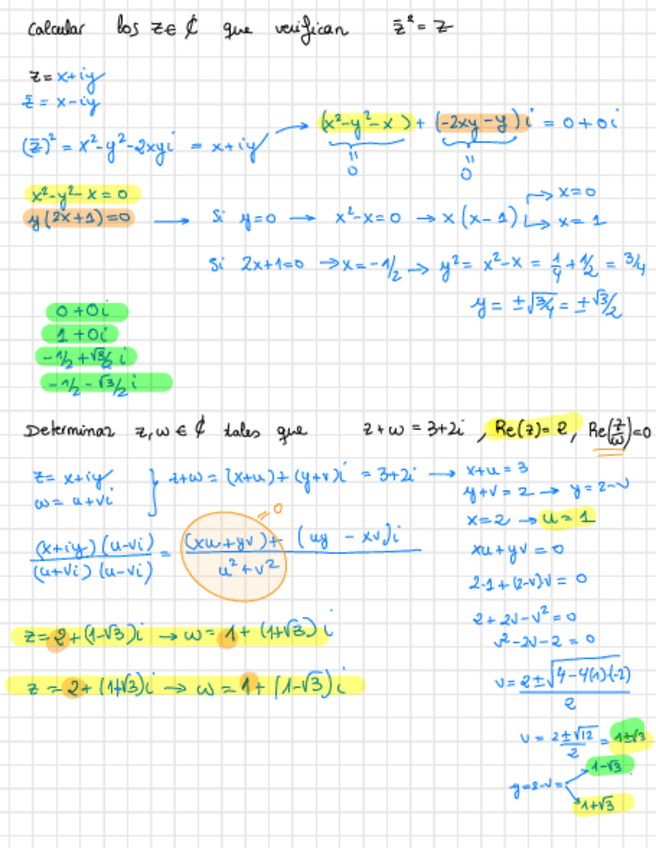 Calcular los z ∈ ℂ que verifican z̄² = z
z = x+iy
z̄ = x-iy
(z̄)² = x²-y²-2xyi = x+iy → (x²-y²-x) + (-2xy-y) i = 0+0i
= 0 = 0
x²-y²-x=0
y(2x+1)=0 → Si y=0 → x²-x=0 → x(x-1) → x=0 → x=1
Si 2x+1=0 → x=-1/2 → y² = x²-x = 1/4 + 1/2 = 3/4
y = ±√3/4 = ±√3/2
0+0i
1+0i
-1/2+√3/2 i
-1/2-√3/2 i
Determinar z,w ∈ ℂ tales que z+w = 3+2i , Re(z)=2, Re(z/w)=0
z= x+iy
w= u+vi } z+w = (x+u)+(y+v)i = 3+2i → x+u = 3
y+v = 2 → y=2-v
x=2 → u=1
(x+iy)(u-vi) / (u+vi)(u-vi) = (xu+yv)+ (uy - xv)i / u²+v² = 0
xu+yv=0
2·1+(2-v)v = 0
2+2v-v²=0
v²-2v-2=0
z= 2+(1-√3)i → w= 1+(1+√3)i
z = 2+(1+√3)i → w = 1+(1-√3)i
v= 2±√4-4(1)(-2) / 2
v = 2±√12 / 2 = 1±√3
y=2-v= 1-√3
1+√3